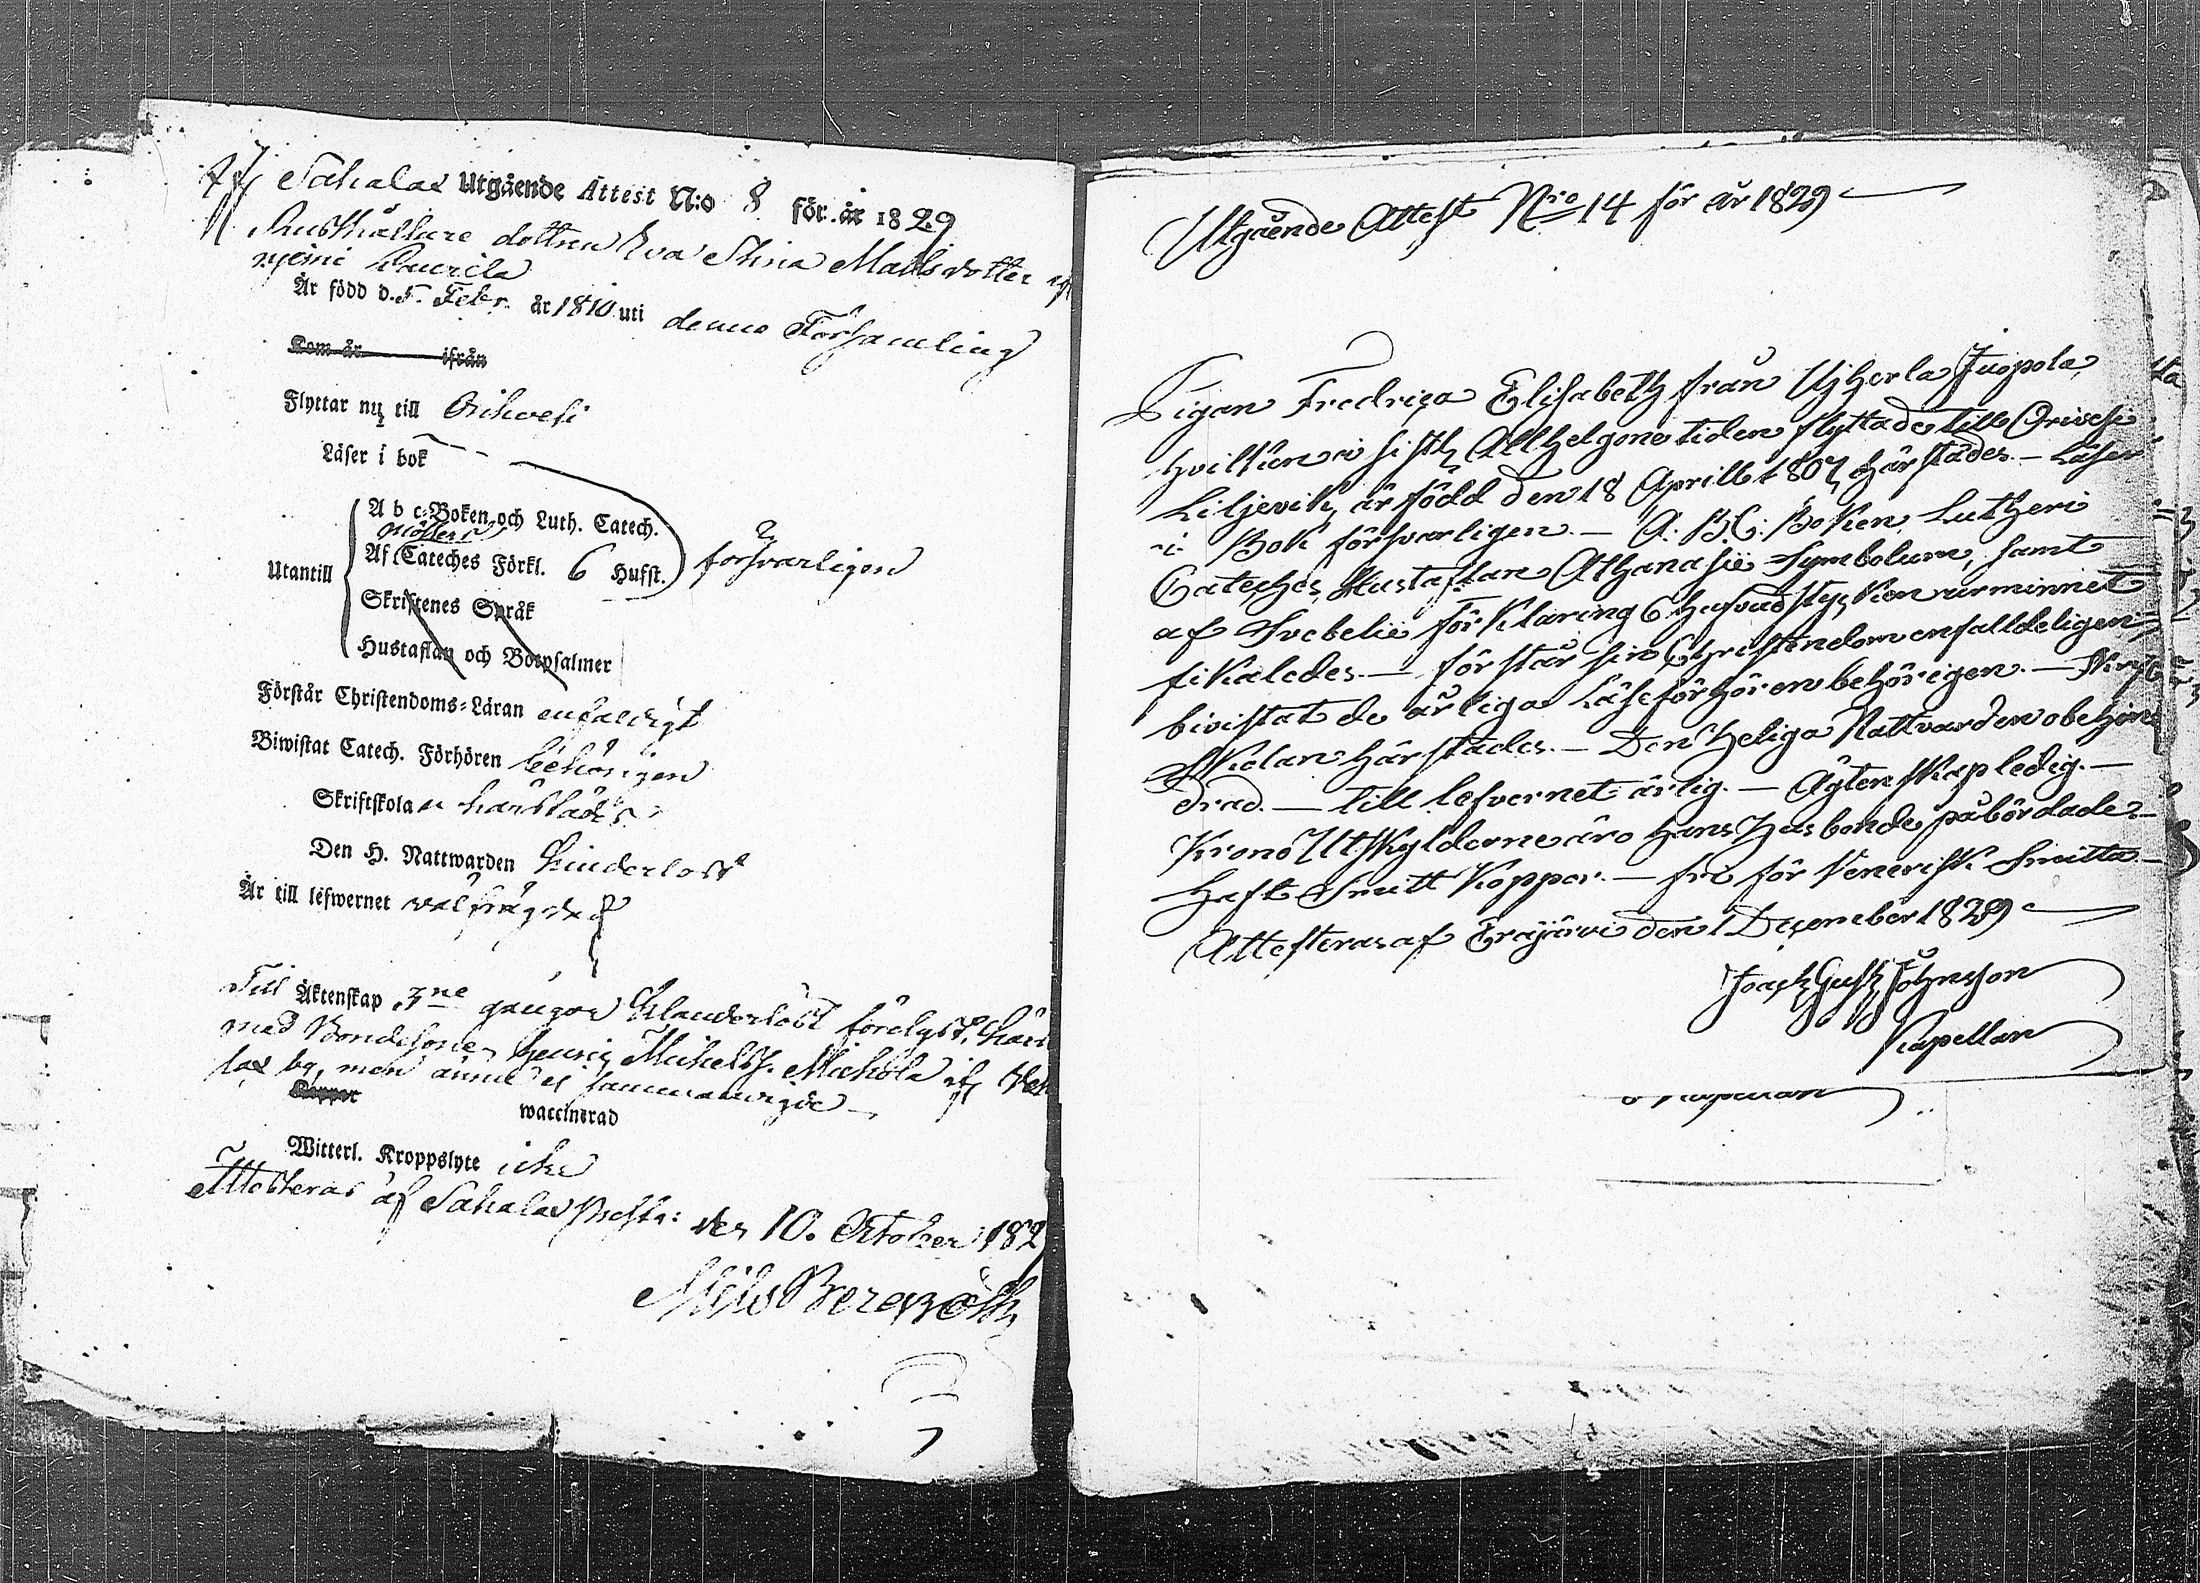 Af Sahalax Utgående Attest N:o 8 för år 1829
Rusthållare dottren Eva Stina Mattsdotter if
Är född d. 5. Febr. år 1810 uti denna Församling
Kom år ifrån
Flyttar nu till Orihvesi
Läser i bok
Utantill
A b c-Boken och Luth. Catech.
Möllers
Af Cateches Förkl. 6 Hufst.
försvarligen
Skriftenes Språk
Hustaflan och Botpsalmer
Förstår Christendoms-Läran enfaldigt
Biwistat Catech. Förhören behörigen
Skriftskolan härstädes
Den H. Nattwarden hinderlöst
Är till lefwernet välfrägdad
Till Äktenskap 3ne gångor klanderlöst förelyst, här
med Bondesonen Henric Michelss. Michola if
lax by, men ännu ej sammanvigde
Koppor waccinerad
Witterl. Kroppslyte icke
Attesteras af Sahalax den 10. October 182
Nils Bergroth
Utgående Attest Nro 14 för år 1829
Pigan Fredrica Elisabeth från Uiherla Juopola,
hvilken vi sistl. Allhelgone tiden flyttade till Orivesi
Liljevik, är född den 18 Aprill 1807 härstädes. — Läser
i Bok försvarligen. — A. B. C. Boken, Lutheri
Cateches, Hustaflan Athanasii Symbolum, samt
af Svebelii Förklaring 6 hufvudstycken urminnet
likaledes. — förstår sin Christendom enfalldeligen
bivistat de årliga Läseförhören behörigen. —
Skolan härstädes. — Den Heliga Nattvarden obehin-
drad. — till lefvernet ärlig. — Ägtenskap ledig. —
Krono Utskylderne äro hans Husbonde påbördade. —
Haft Smitt Koppor. — fri för Venerisk Smitta —
Attesteras af Eräjärvi den 1 December 1829
Joach. Gust. Johnsson
Kapellan